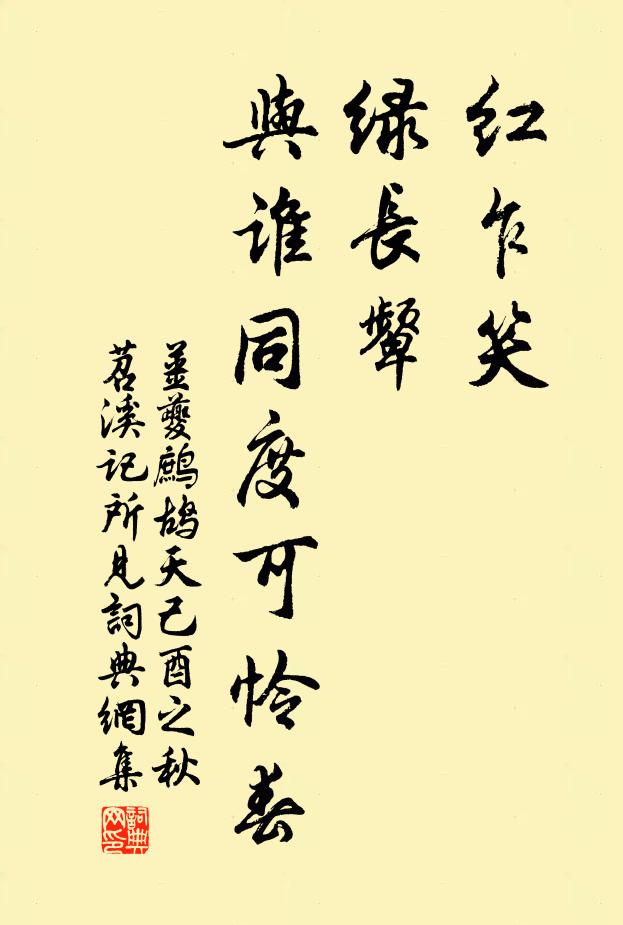 紅乍笑
綠長颦
與誰同度可怜春
姜夔鷓鴣天己酉之秋
苕溪記所見詞典網集
詞典网印